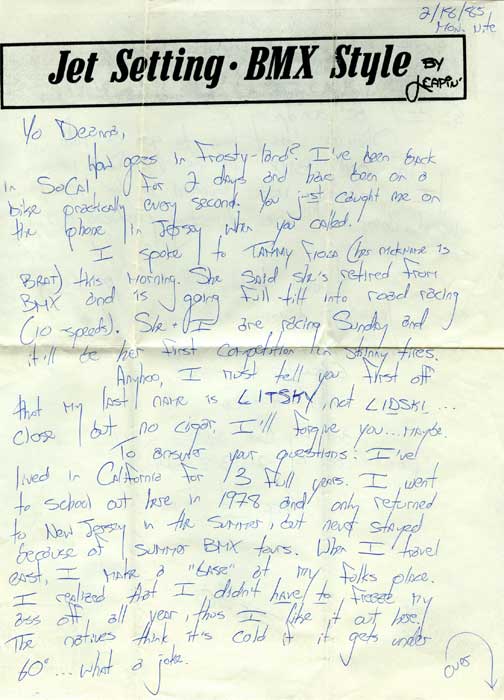 2/18/85,
Mon. Nite
Jet Setting • BMX Style BY
LEAPIN'
Yo Deanna,
How goes in Frosty-land? I've been back
in SoCal, for 2 days and have been on a
bike practically every second. You just caught me on
the phone in Jersey when you called.
I spoke to TAMMY (her nickname is
BRAT) this morning. She said she's retired from
BMX and is going full tilt into road racing
(10 speeds). She + I are racing Sunday and
it'll be her first competition on skinny tires.
Anyhoo, I must tell you first off
that my last name is LITSKY, not LIDSKI...
close but no cigar. I'll forgive you...maybe.
To answer your questions: I've
lived in California for 3 full years. I went
to school out here in 1978 and only returned
to New Jersey in the summer, but never stayed
because of summer BMX tours. When I travel
east, I make a "base" at my folks place.
I realized that I didn't have to freeze my
ass off all year, thus I like it out here.
The natives think it's cold if it gets under
60°...what a joke.
over